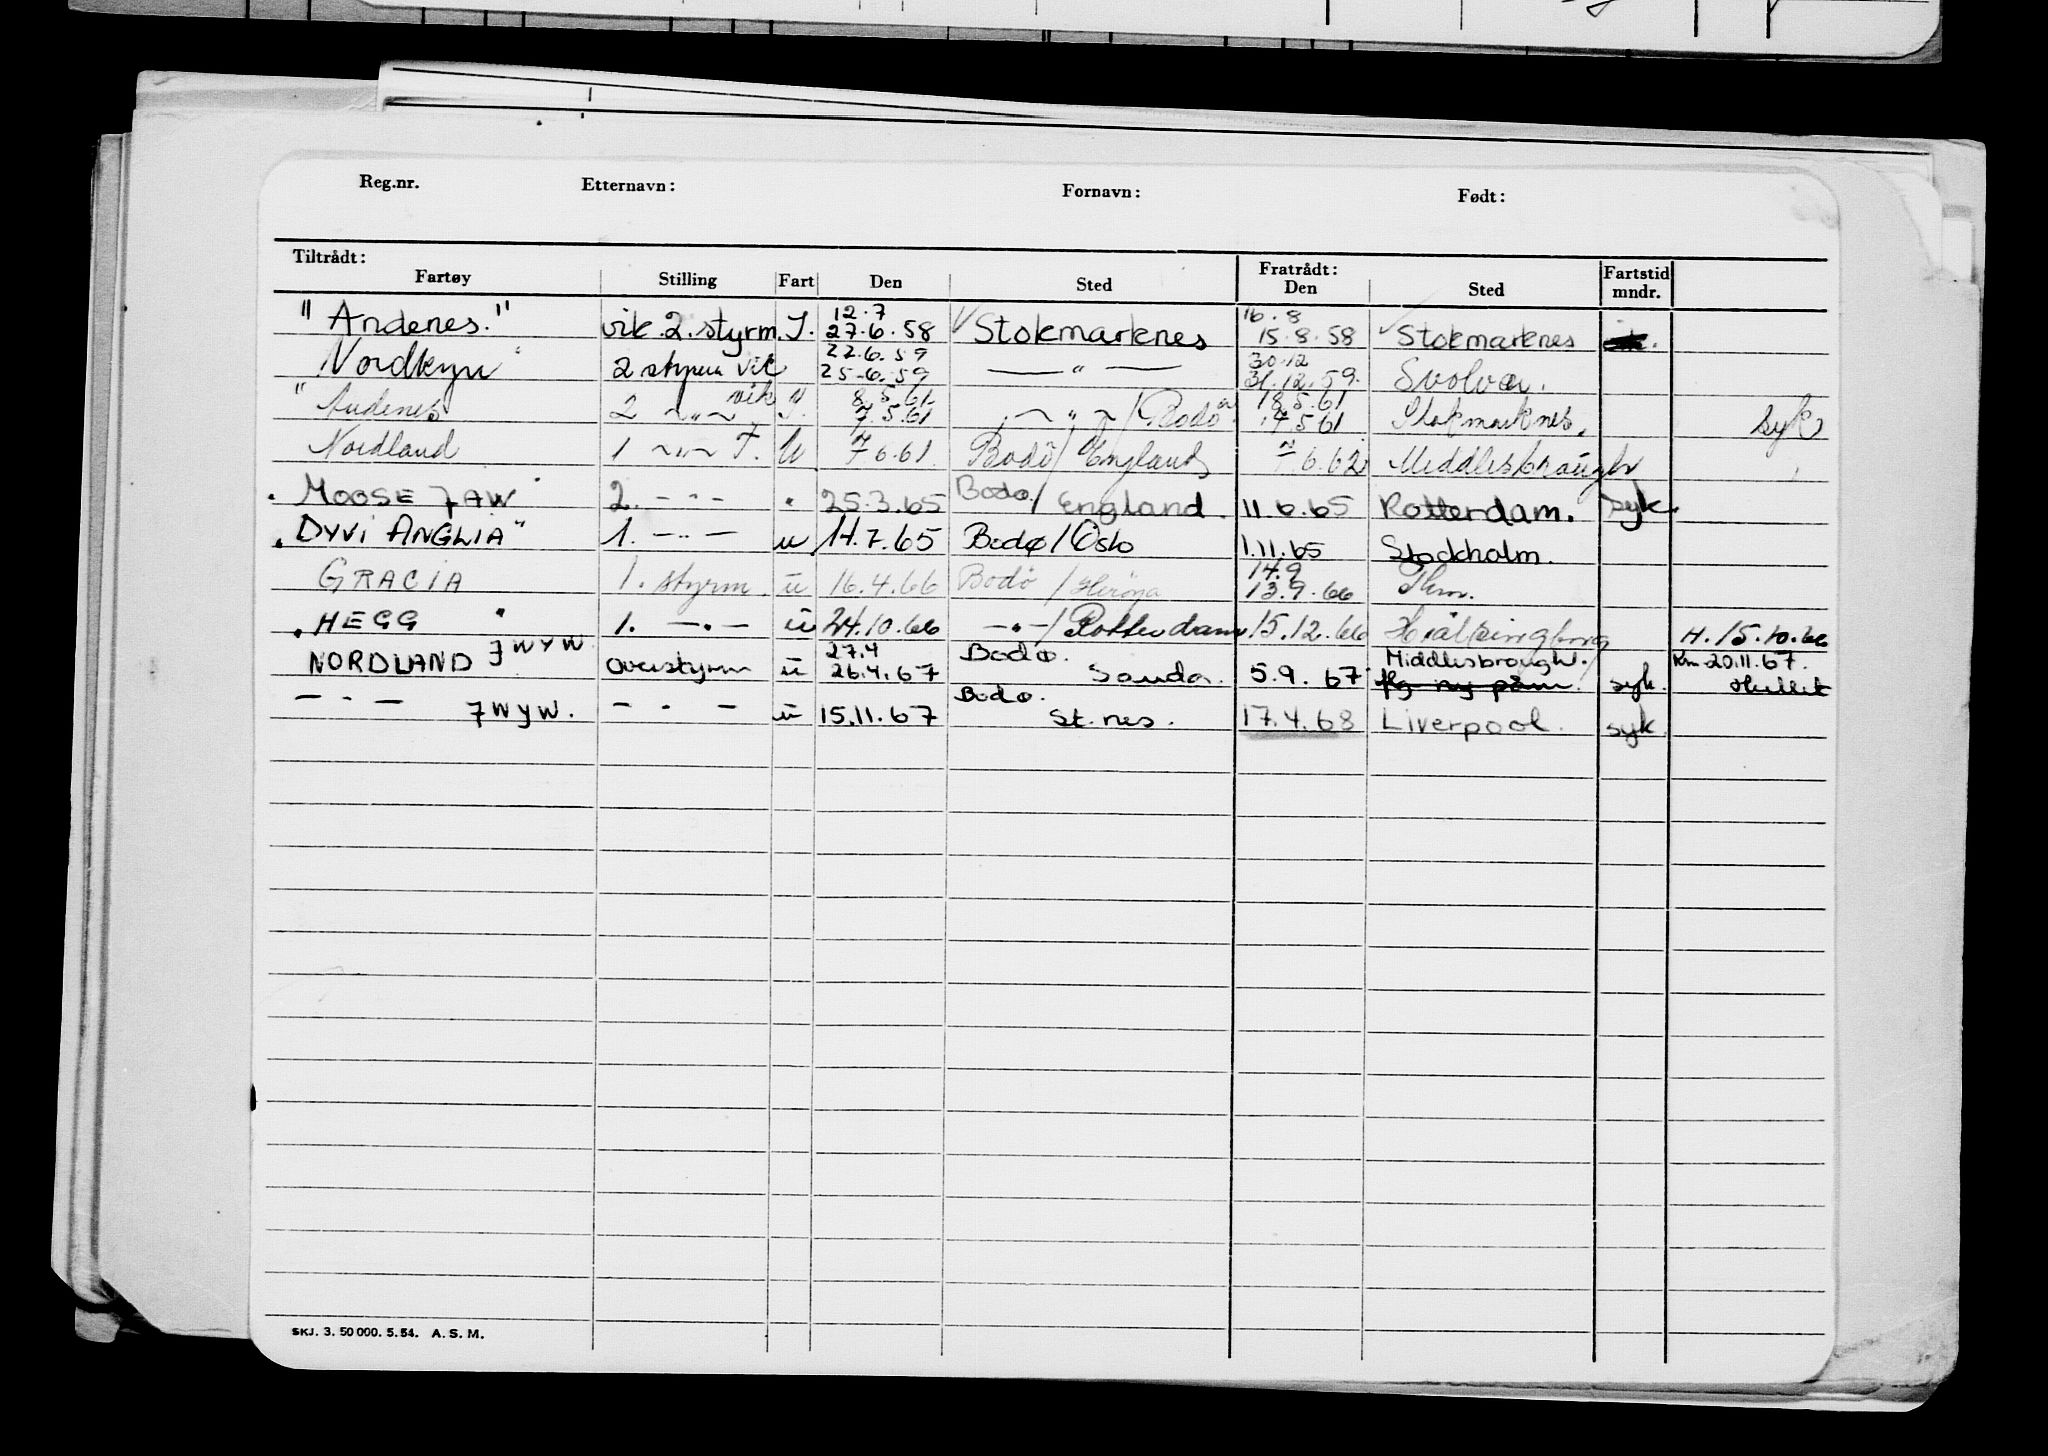 Reg.nr. Etternavn: Fornavn: Født:
Tiltrådt: Fratrådt: Fartstid
Fartøy Stilling Fart Den Sted Den Sted mndr.
12.7 16.8
"Andenes." vik. 2. styrm. I. 27.6.58 Stokmarknes 15.8.58 Stokmarknes
22.6.59 30.12
Nordkyn" 2 styrm vik 25.6.59 — " — 31.12.59. Svolvær.
vik 8.5.61. 18.5.61
"Andenes 2 ~"~ I. 7.5.61 ~ " ~ / Bodø 17.5.61 Stokmarknes. syk
Nordland 1 ~"~ F. U 7 6.61. Bodö/ England 6.62 Middlesbrough
"MOOSE JAW" 2. — " — " 25.3.65 Bodø/ England. 11.6.65 Rotterdam. syk.
"DYVI ANGLIA" 1. — " — u 14.7.65 Bodø/Oslo 1.11.65 Stockholm.
14.9
GRACIA 1. styrm. u 16.4.66 Bodö / Herøya 13.9.66
"HEGG" 1. — " — u 24.10.66 — " —/ Rotterdam 15.12.66 Hälsingborg H. 15.10.66
JWYW 27.4 Bodø. Middlesbrough. 20.11.67.
NORDLAND overstyrm u 26.4.67 Sauda. 5.9.67 fg ny påm. syk.
— " — — " — u 15.11.67 Bodø.
JWYW. St.nes. 17.4.68 Liverpool. syk.
SKJ. 3. 50 000. 5. 54. A. S. M.